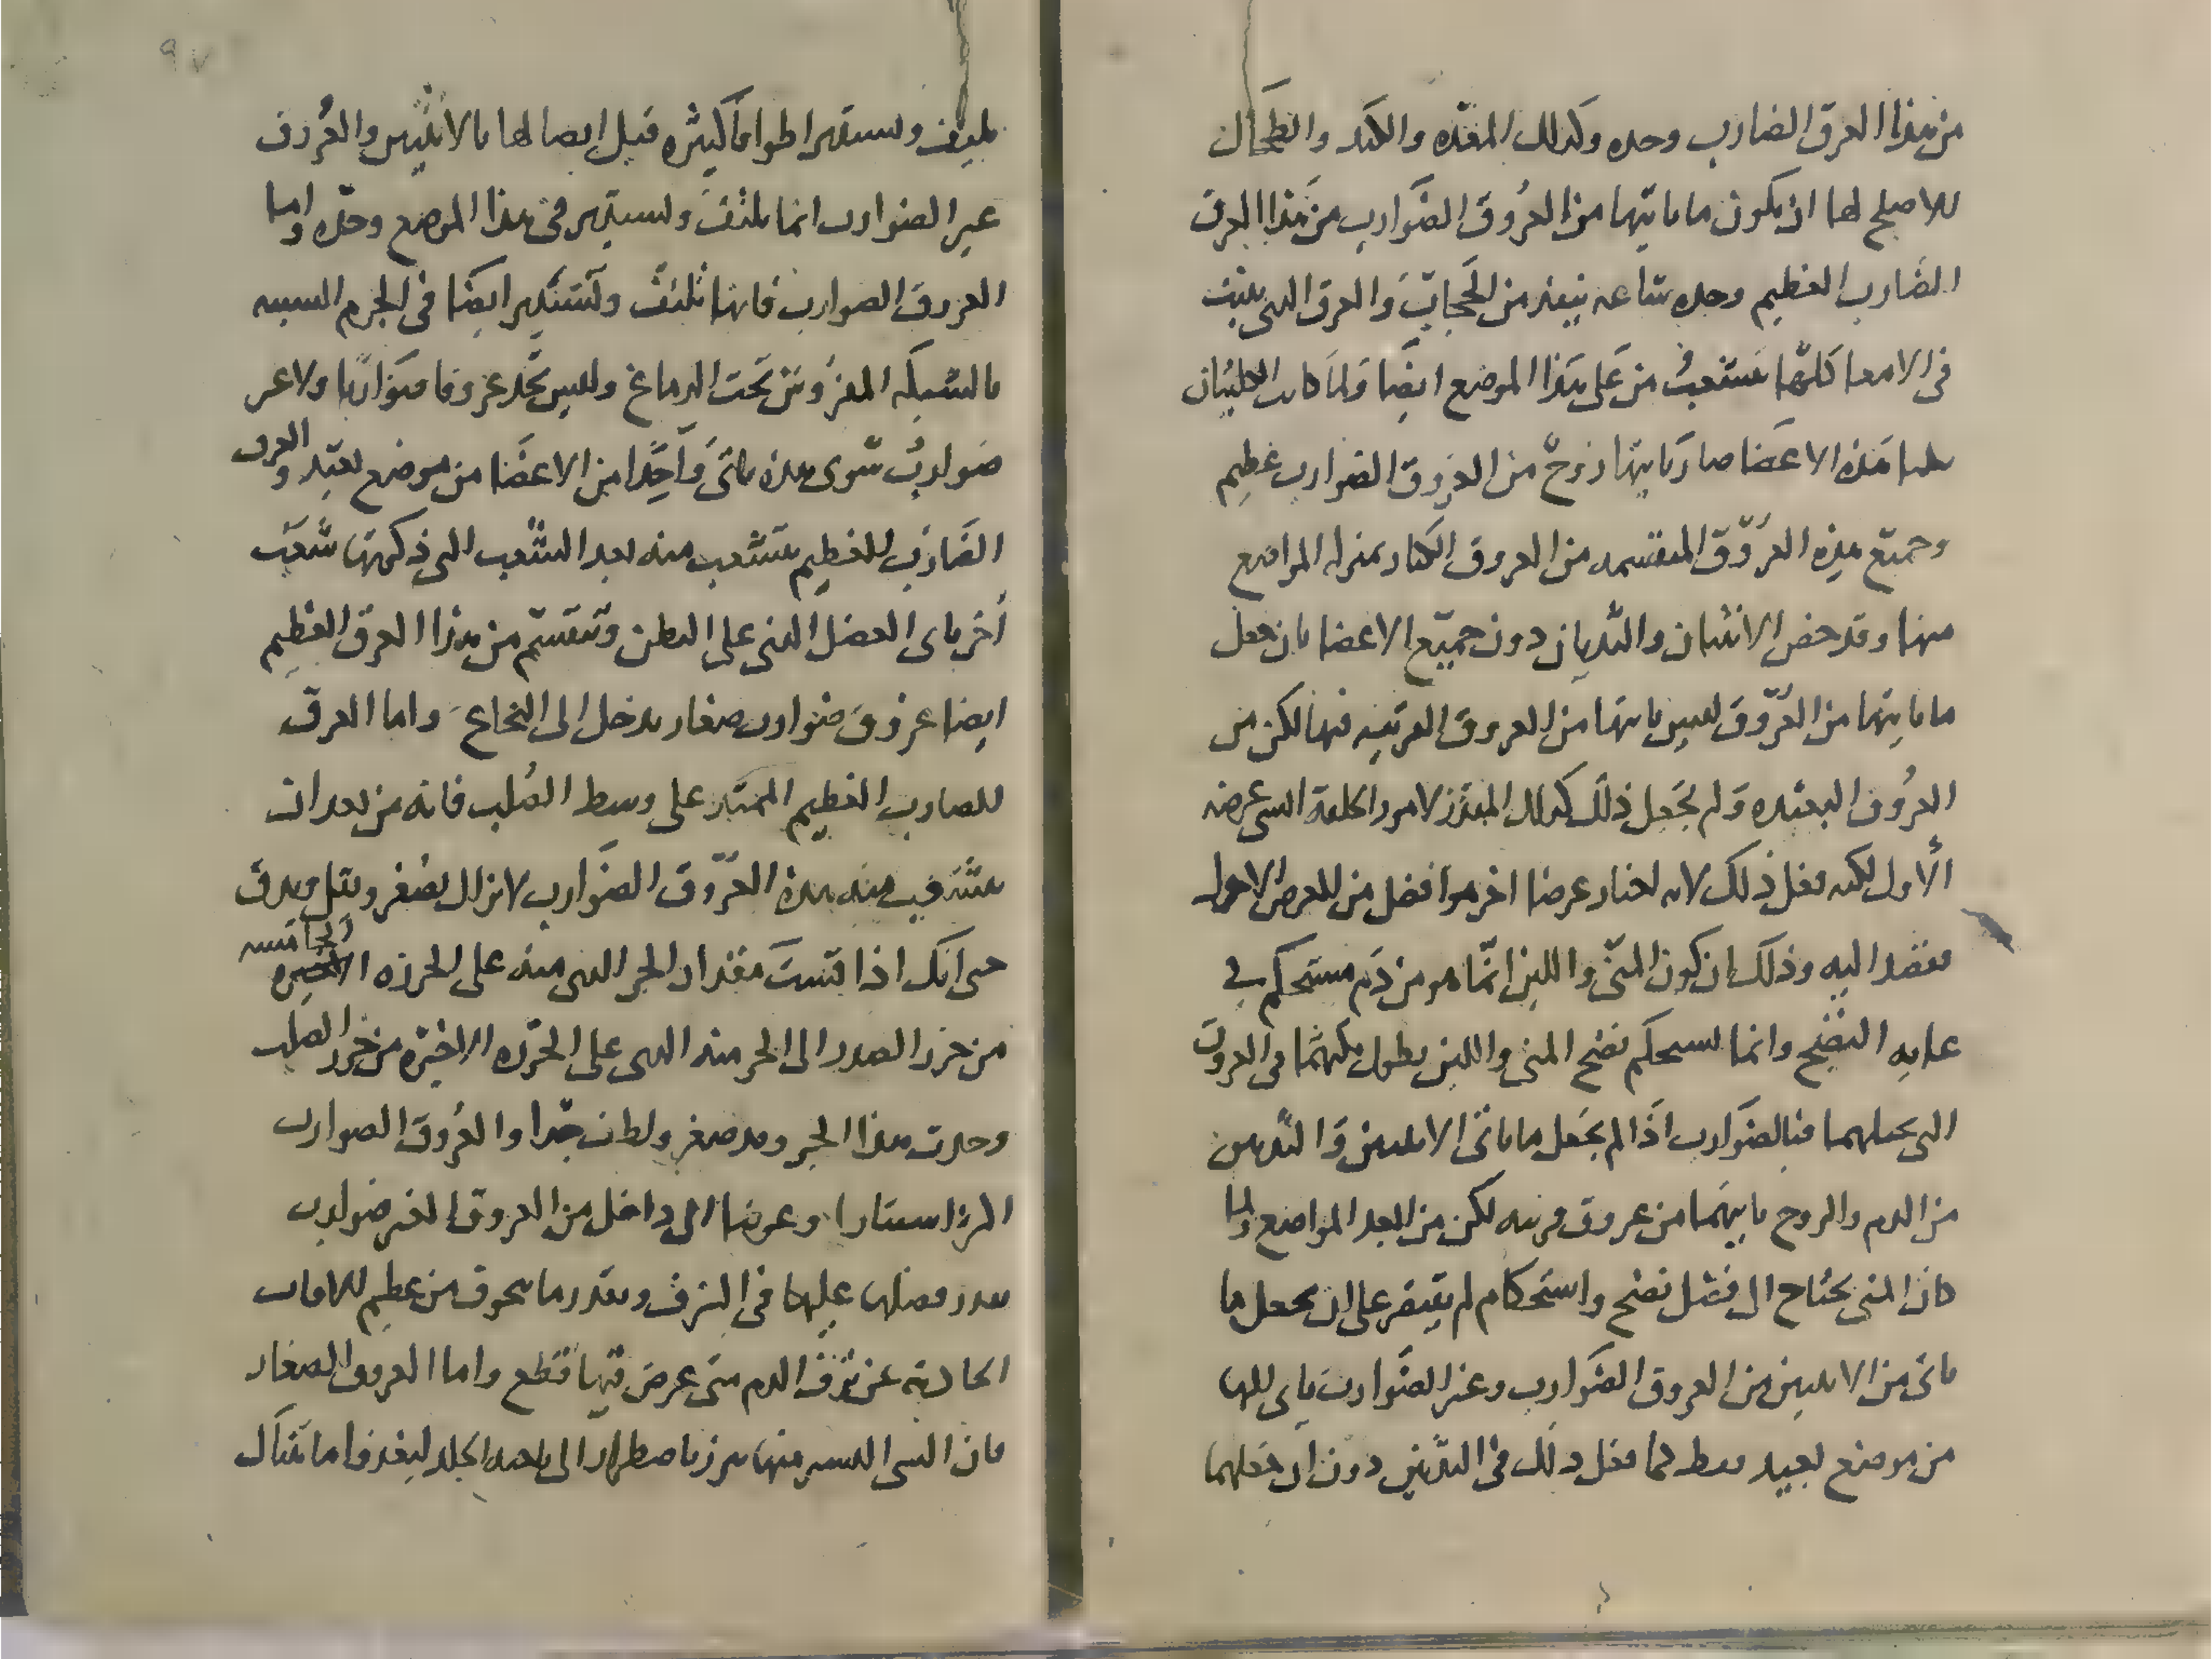 من هذا العرق الضارب وحده وكذلك المعده والكبد والطحال
للاصلح لها ان يكون ما ياتيها من العروق الضوارب من هذا العرق
الضارب العظيم وحده ساعه ينفذ من الحجاب والعرق التى تنبث
فى الامعا كلها تتشعب من على هذا الموضع ايضا ولما كانت الكليتان
هذه الاعضا صار ياتيها زوج من العروق الضوارب عظيم
وجميع هذه العروق المنقسمه من العروق الكبار بمنزله المواضع
منها وقد خص الانثيان والثديان دون جميع الاعضا بان جعل
ما ياتيها من العروق ليس ياتيها من العروق القريبه منها لكن من
العروق البعيده ولم يجعل ذلك كذلك المقدر لامور الخلقة التى غرضه
الاول لكنه فعل ذلك لانه اختار غرضا اخر هو افضل من الغرض الاول
فقصد اليه وذلك ان كون المنى واللبن انما هو من دم مستحكم فى
غايه النضج وانما يستحكم نضج المنى واللبن بطول مكثهما فى العروق
التى تحملهما فبالضوارب اذا لم يجعل ما ياتى الانثيين والثديين
من الدم والروح ياتيهما من عروق قريبه لكن من ابعد المواضع ولما
كان المنى يحتاج الى فضل نضج واستحكام لم يقتصر على ان يجعل ما
ياتى من الانثيين من العروق الضوارب وغير الضوارب ياتى اليها
من موضع بعيد فقط كما فعل ذلك فى الثديين دون ان جعلهما
٩٧
تلتف وتستدير اطوافا كثيره قبل اتصالها بالانثيين والعروق
غير الضوارب انما تلتف وتستدير فى هذا الموضع وحده واما
العروق الضوارب فانها تلتف وتستدير ايضا فى الجرم الشبيه
بالشبكه المفروش تحت الدماغ وليس تجد عروقا ضواربا ولا غير
ضوارب سوى هذه ياتى واحدا من الاعضا من موضع بعيد والعرق
الضارب العظيم يتشعب منه بعد الشعب التى ذكرتها شعب
اخر ياتى العضل الذى على البطن وتنقسم من هذا العرق العظيم
ايضا عروق ضوارب صغار يدخل الى النخاع واما العرق
الضارب العظيم الممتد على وسط الصلب فانه من بعد ان
يتشعب منه هذه العروق الضوارب لا يزال يصغر ويقل ويدق
حتى انك اذا قست مقدار الجز الذى منه على الخرزه الخامسه
من خرز الصدر الى الجز منه الذى على الخرزه الاخيره من خرز الصلب
وجدت هذا الجز وقد صغر ولطف جدا والعروق الضوارب
اكثر استتارا وغوضا الى داخل من العروق الغير ضوارب
بقدر فضلها عليها فى الشرف وبقدر ما يتخوف من عظيم الافات
الحادثه عن نزف الدم متى عرض فيها قطع واما العروق الصغار
فان الشى اليسير منها يبرز ما ظهر الى ناحيه الجلد ليغذوا ما هناك